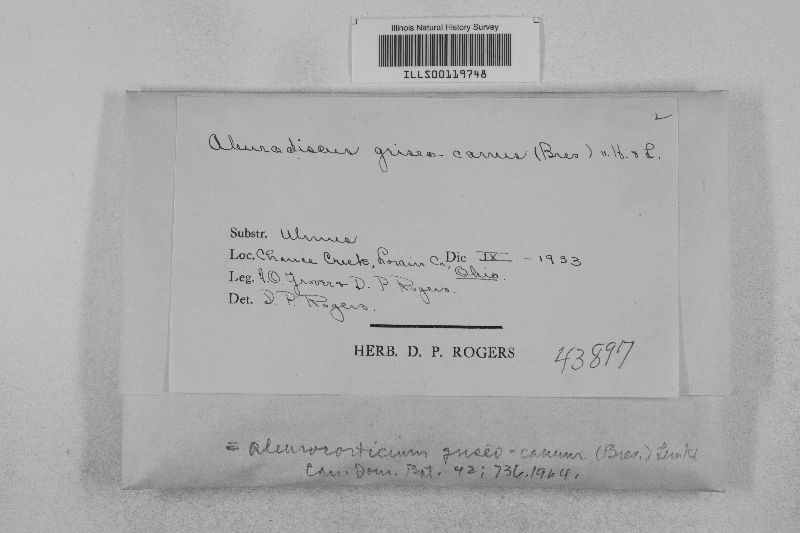 Illinois Natural History Survey
ILLS00119748
2
Aleurodiscus griseo-canus (Bres.) v.H. & L.
Substr. Ulmus
Loc. Chance Creek, Lorain Co., Ohio. Die IX - 1933
Leg. F.O. Grover & D. P. Rogers.
Det. D. P. Rogers.
HERB. D. P. ROGERS
43897
= Aleurocorticium griseo-canum (Bres.) Lemke
Can. Jour. Bot. 42: 736. 1964.